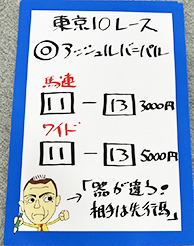 東京10レース
◎アッシュルバニパル
馬連
11-13 3000円
ワイド
11-13 5000円
→「器が違う!
相手は先行馬」